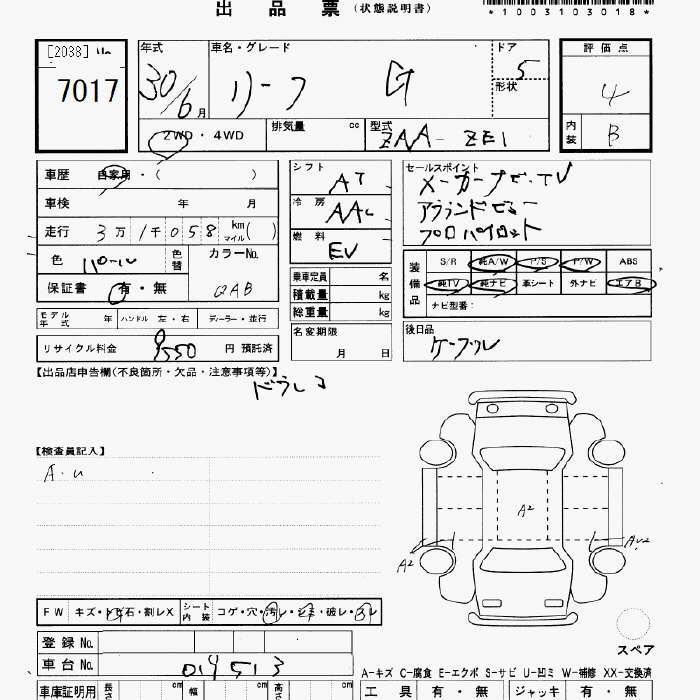 出品票 (状態説明書)
*1003103018*
[2038]
7017
年式 30/6月
車名・グレード リーフ G
ドア 5
形状
評価点 4
内装 B
2WD・4WD
排気量 cc
型式 ZAA-ZE1
車歴 自家用・( )
車検 年 月
走行 3万1千058 km マイル( )
色 パール 色替
カラーNo. QAB
保証書 有・無
モデル年式 年 ハンドル 左・右 ディーラー・並行
リサイクル料金 9550 円 預託済
シフト AT
冷房 AAC
燃料 EV
乗車定員 名
積載量 kg
総重量 kg
名変期限 月 日
セールスポイント
メーカーナビ・TV
アラウンドビュー
プロパイロット
装備品 S/R 純A/W P/S P/W ABS
純TV 純ナビ 革シート 外ナビ エアB
ナビ型番:
後日品
ケーブル
【出品店申告欄(不良箇所・欠品・注意事項等)】
ドラレコ
【検査員記入】
A・U
A2
A2
AU2
FW キズ・トビ石・割レX シート内装 コゲ・穴・汚レ・シミ・破レ・スレ
登録No.
車台No. 019513
スペア
A-キズ C-腐食 E-エクボ S-サビ U-凹ミ W-補修 XX-交換済
車庫証明用 長さ cm 幅 cm 高さ cm
工具 有・無 ジャッキ 有・無